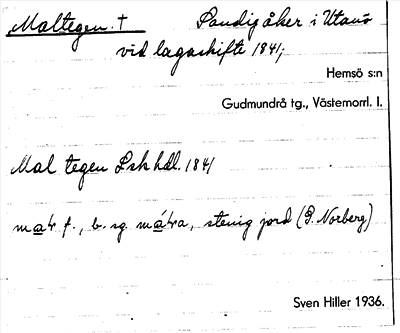 Maltegen. † Sandig åker i Utanö
vid lagaskifte 1841;
Hemsö s:n
Gudmundrå tg., Västernorrl. l.
Mal tegen Lsk hdl. 1841
mar f., b. sg. mára, stenig jord (P. Norberg)
Sven Hiller 1936.